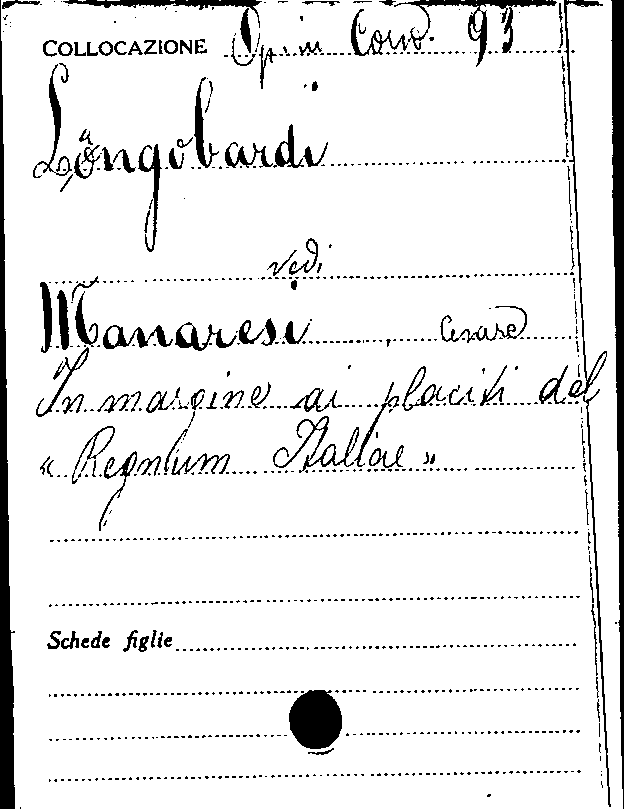 COLLOCAZIONE Opin Conv. 93
Longobardi
vedi
Manaresi, Cesare
In margine ai placiti del
« Regnum Italiae »
Schede figlie